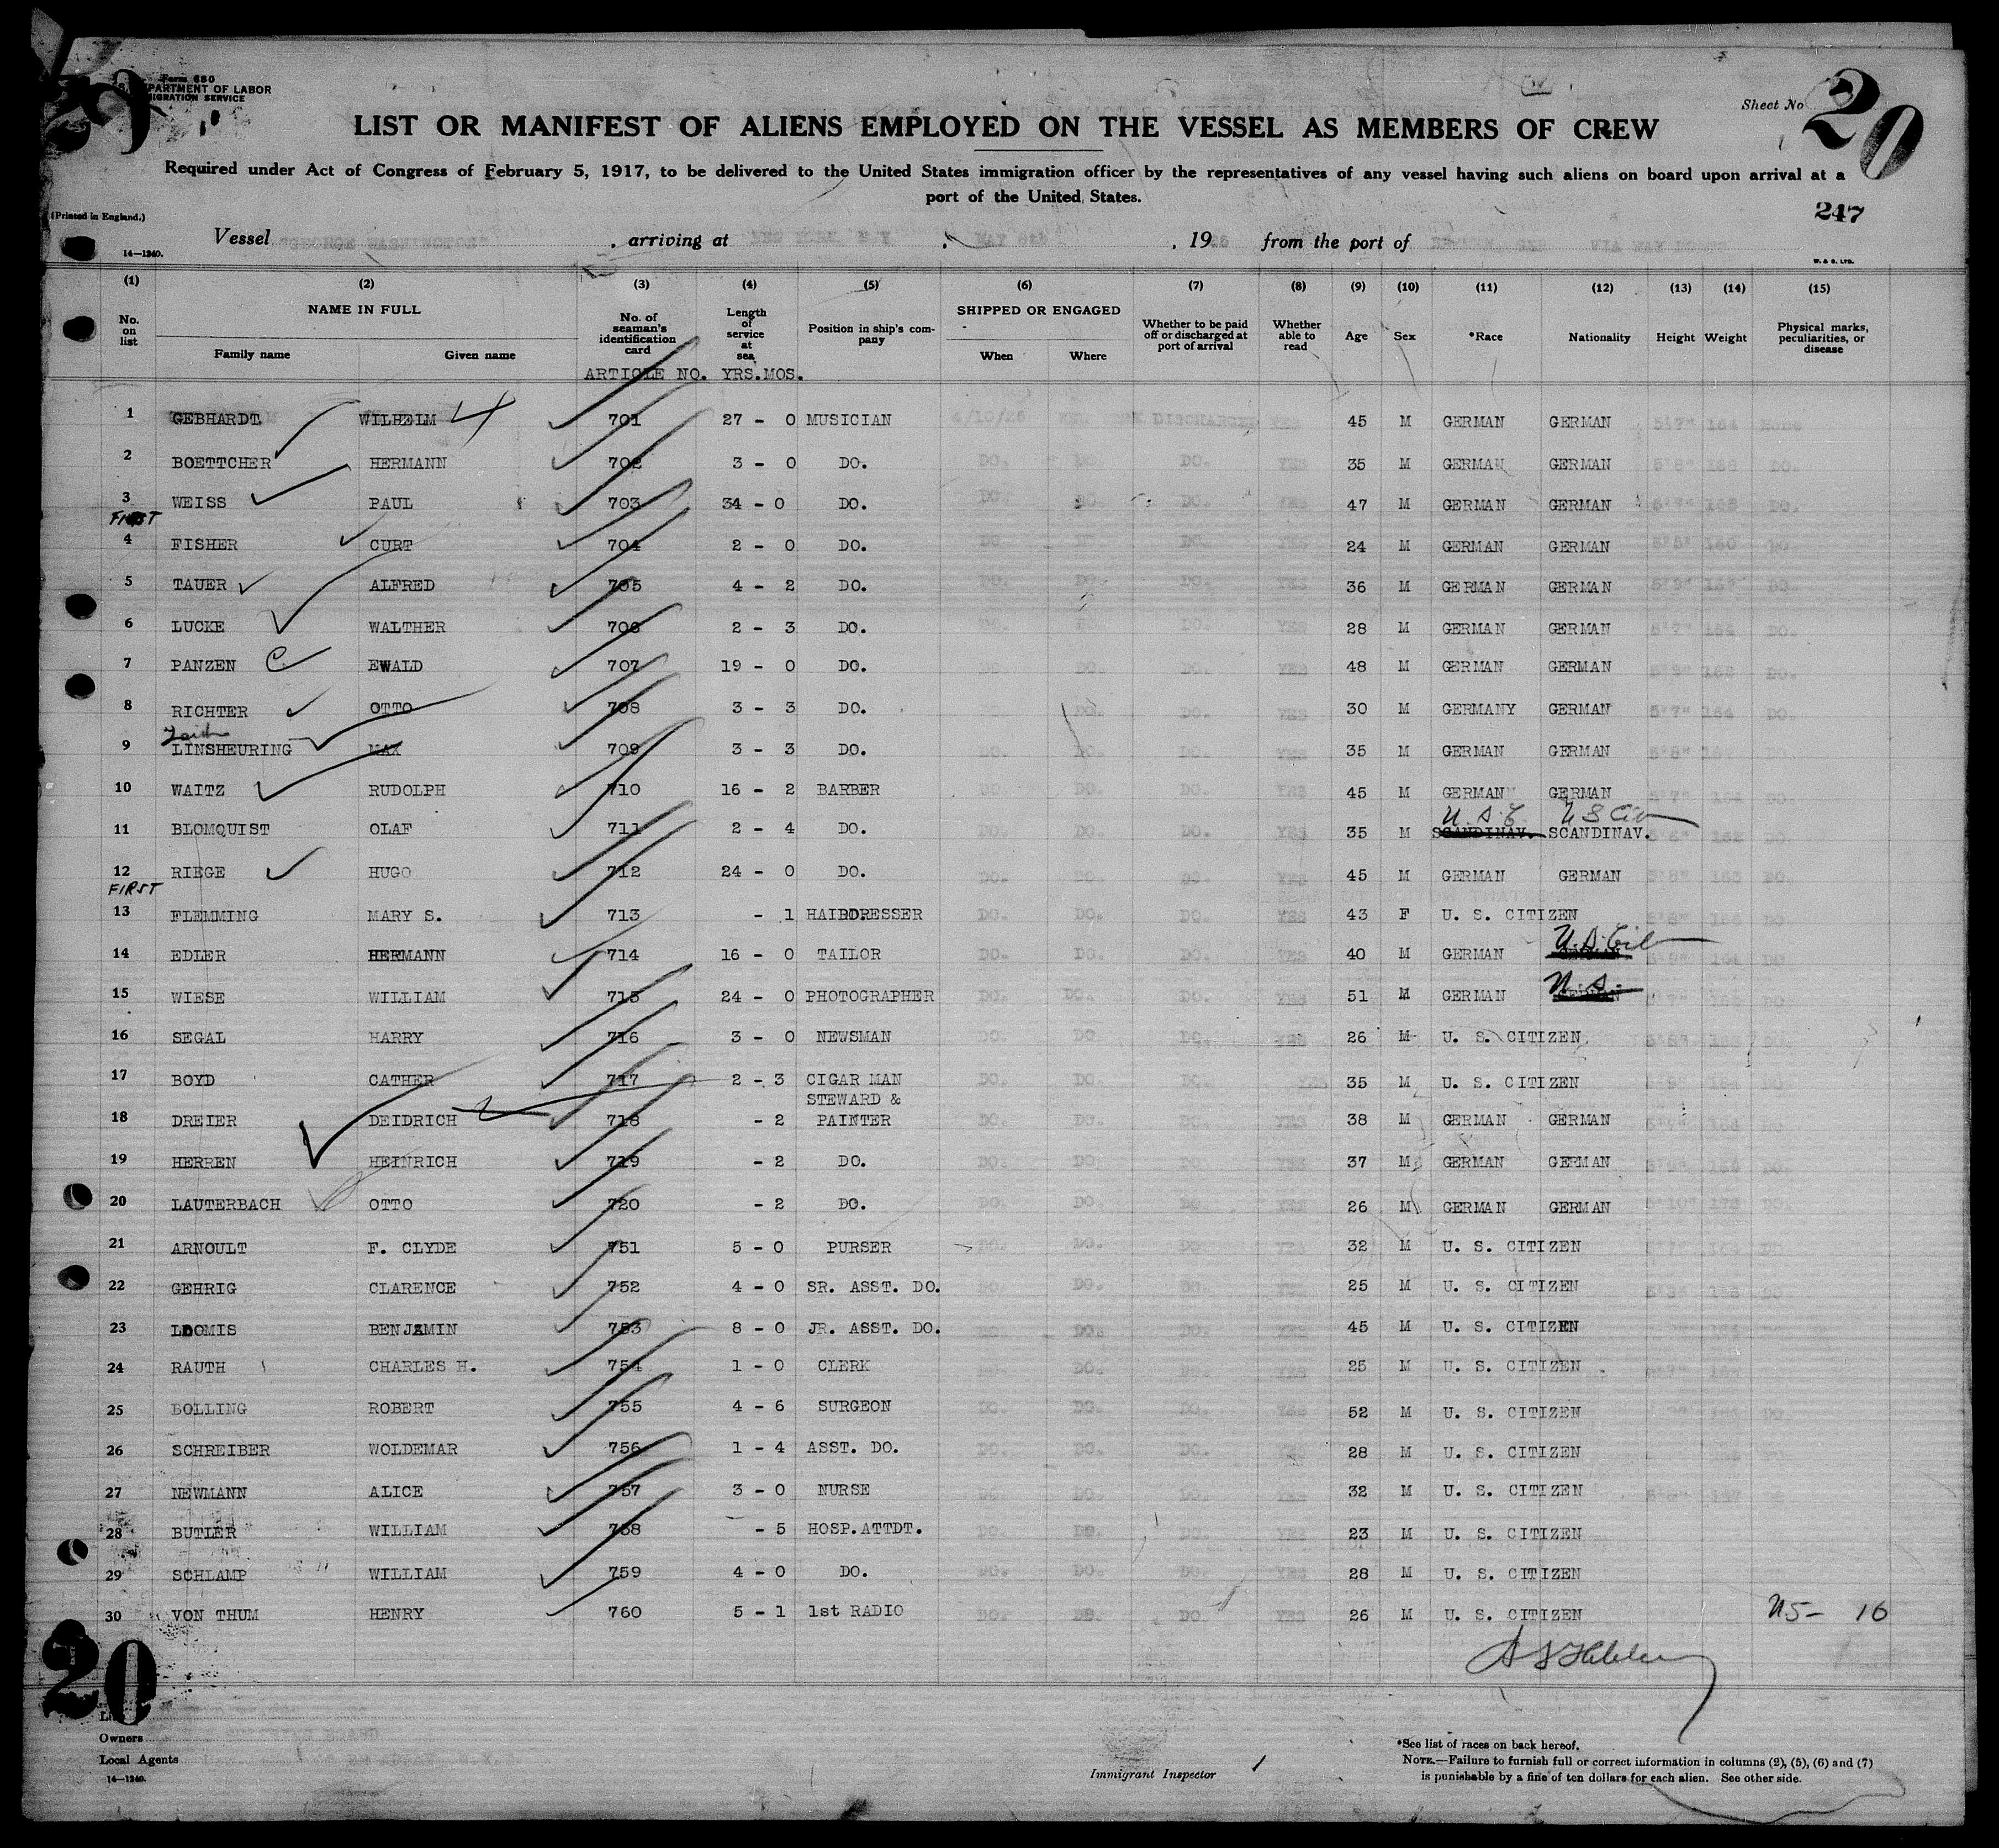 20
Form 680
DEPARTMENT OF LABOR
IMMIGRATION SERVICE
Sheet No 20
LIST OR MANIFEST OF ALIENS EMPLOYED ON THE VESSEL AS MEMBERS OF CREW
Required under Act of Congress of February 5, 1917, to be delivered to the United States immigration officer by the representatives of any vessel having such aliens on board upon arrival at a
port of the United States.
247
(Printed in England.)
14—1240.
Vessel "GEORGE WASHINGTON", arriving at NEW YORK N.Y., MAY 6th, 1926 from the port of BREMEN, GER VIA WAY
W. & S. LTD.
(1) (2) (3) (4) (5) (6) (7) (8) (9) (10) (11) (12) (13) (14) (15)
No. on list NAME IN FULL Family name Given name No. of seaman's identification card Length of service at sea Position in ship's company SHIPPED OR ENGAGED When Where Whether to be paid off or discharged at port of arrival Whether able to read Age Sex *Race Nationality Height Weight Physical marks, peculiarities, or disease
ARTICLE NO. YRS.MOS.
1 GEBHARDT WILHELM 701 27 - 0 MUSICIAN 4/10/26 DISCHARGED YES 45 M GERMAN GERMAN 5'7" 154 None
2 BOETTCHER HERMANN 702 3 - 0 DO. DO. DO. DO. YES 35 M GERMAN GERMAN DO.
3 WEISS PAUL 703 34 - 0 DO. DO. DO. DO. YES 47 M GERMAN GERMAN DO.
FIRST
4 FISHER CURT 704 2 - 0 DO. DO. DO. YES 24 M GERMAN GERMAN 160 DO.
5 TAUER ALFRED 705 4 - 2 DO. DO. DO. DO. YES 36 M GERMAN GERMAN DO.
6 LUCKE WALTHER 706 2 - 3 DO. DO. YES 28 M GERMAN GERMAN DO.
7 PANZEN C EWALD 707 19 - 0 DO. DO. DO. DO. YES 48 M GERMAN GERMAN DO.
8 RICHTER OTTO 708 3 - 3 DO. DO. DO. YES 30 M GERMANY GERMAN 5'7" 164 DO.
9 LINSHEURING MAX 709 3 - 3 DO. DO. DO. DO. YES 35 M GERMAN GERMAN
10 WAITZ RUDOLPH 710 16 - 2 BARBER DO. DO. DO. YES 45 M GERMAN GERMAN DO.
U.S.C U S Citn
11 BLOMQUIST OLAF 711 2 - 4 DO. DO. DO. DO. YES 35 M SCANDINAV. SCANDINAV. DO
12 RIEGE HUGO 712 24 - 0 DO. DO. DO. DO. YES 45 M GERMAN GERMAN DO
FIRST
13 FLEMMING MARY S. 713 - 1 HAIRDRESSER DO. DO. DO. YES 43 F U. S. CITIZEN DO
U.S.Citn
14 EDLER HERMANN 714 16 - 0 TAILOR DO. DO. DO. YES 40 M GERMAN GERMAN DO
U.S.
15 WIESE WILLIAM 715 24 - 0 PHOTOGRAPHER DO. DO. DO. YES 51 M GERMAN GERMAN DO
16 SEGAL HARRY 716 3 - 0 NEWSMAN DO. DO. DO. YES 26 M U. S. CITIZEN DO
17 BOYD CATHER 717 2 - 3 CIGAR MAN DO. DO. DO. YES 35 M U. S. CITIZEN DO
STEWARD &
18 DREIER DEIDRICH 718 - 2 PAINTER DO. DO. DO. YES 38 M GERMAN GERMAN DO
19 HERREN HEINRICH 719 - 2 DO. DO. DO. DO YES 37 M GERMAN GERMAN DO.
20 LAUTERBACH OTTO 720 - 2 DO. DO. DO. DO. YES 26 M GERMAN GERMAN 5'10" 175 DO.
21 ARNOULT F. CLYDE 751 5 - 0 PURSER DO. DO. DO. YES 32 M U. S. CITIZEN DO
22 GEHRIG CLARENCE 752 4 - 0 SR. ASST. DO. DO. DO. DO. YES 25 M U. S. CITIZEN DO
23 LOOMIS BENJAMIN 753 8 - 0 JR. ASST. DO. DO. DO. DO. YES 45 M U. S. CITIZEN
24 RAUTH CHARLES H. 754 1 - 0 CLERK DO. DO. DO. YES 25 M U. S. CITIZEN
25 BOLLING ROBERT 755 4 - 6 SURGEON DO. DO. DO. YES 52 M U. S. CITIZEN DO
26 SCHREIBER WOLDEMAR 756 1 - 4 ASST. DO. DO. DO. DO. YES 28 M U. S. CITIZEN
27 NEWMANN ALICE 757 3 - 0 NURSE DO. DO. DO. YES 32 M U. S. CITIZEN
28 BUTLER WILLIAM 758 - 5 HOSP.ATTDT. DO. DO. DO. YES 23 M U. S. CITIZEN
29 SCHLAMP WILLIAM 759 4 - 0 DO. DO. DO. DO. YES 28 M U. S. CITIZEN
30 VON THUM HENRY 760 5 - 1 1st RADIO DO. DO. DO. YES 26 M U. S. CITIZEN US- 16
20
Owners SHIPPING BOARD
Local Agents BROADWAY N.Y.C.
14—1240.
Immigrant Inspector
*See list of races on back hereof.
NOTE.—Failure to furnish full or correct information in columns (2), (5), (6) and (7)
is punishable by a fine of ten dollars for each alien. See other side.